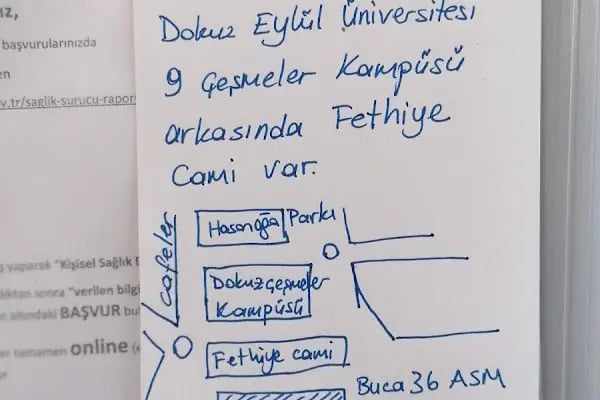 ız,
başvurularınızda
en
v.tr/saglik-surucu-rapor
ş yaparak "Kişisel Sağlık
dıktan sonra "verilen bilgi
n altındaki BAŞVUR bu
er tamamen online (e
ur
Dokuz Eylül Üniversitesi
9 Çeşmeler Kampüsü
arkasında Fethiye
Cami var.
Cafeler
Hasanağa Parkı
Dokuzçeşmeler
Kampüsü
Fethiye cami
Buca 36 ASM